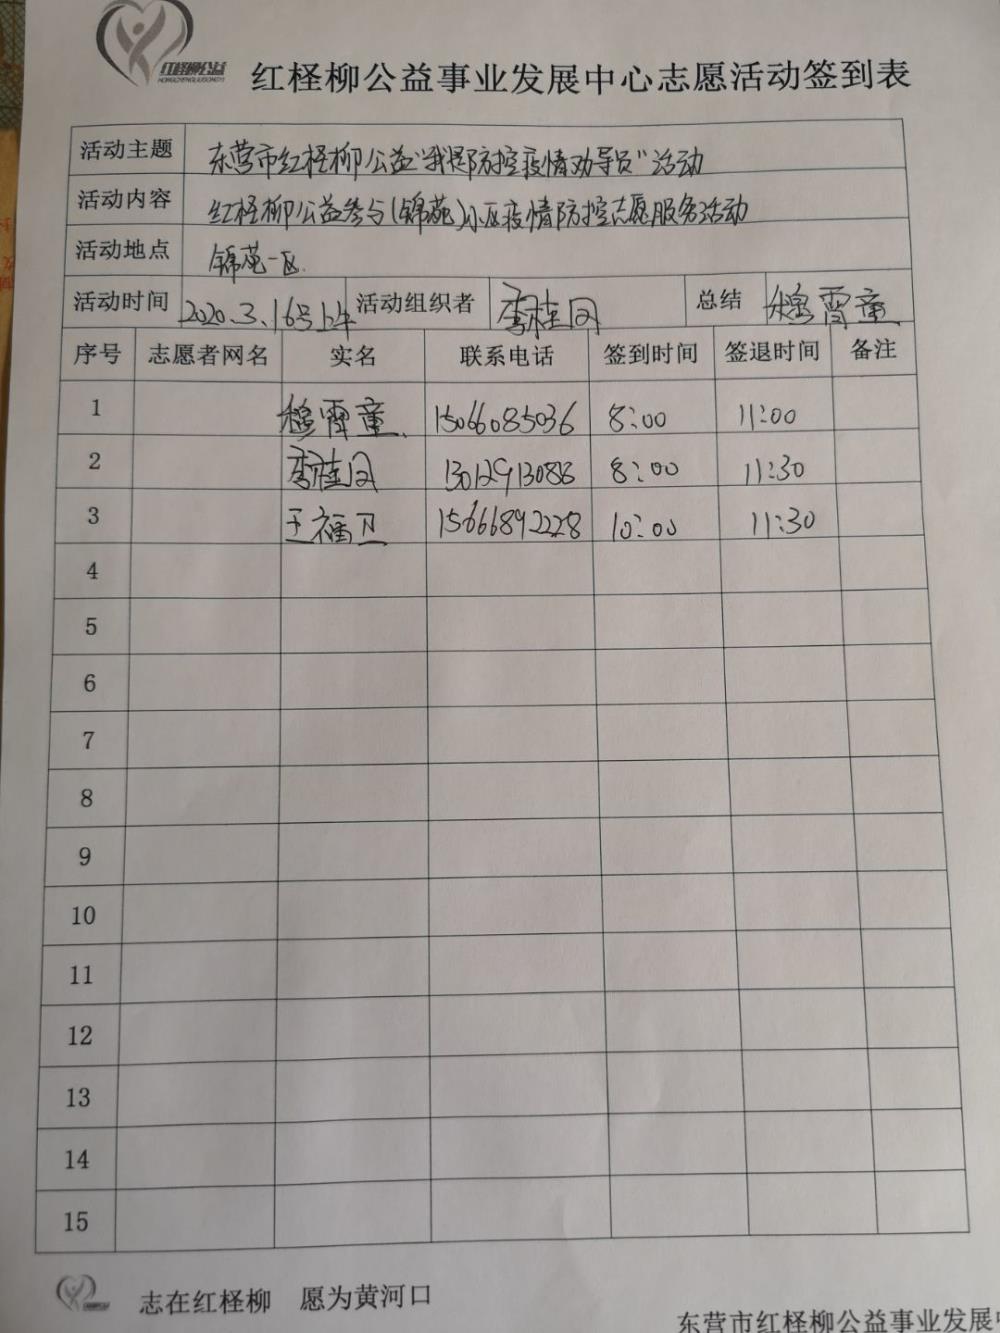 红柽柳公益
HONGCHENGLIUGONGYI
红柽柳公益事业发展中心志愿活动签到表
活动主题 东营市红柽柳公益"我是防控疫情劝导员"活动
活动内容 红柽柳公益参与(锦苑)小区疫情防控志愿服务活动
活动地点 锦苑一区.
活动时间 2020.3.16号上午 活动组织者 李桂凤 总结 穆霄童
序号 志愿者网名 实名 联系电话 签到时间 签退时间 备注
1 穆霄童 15066085036 8:00 11:00
2 李桂凤 8:00 11:30
3 王福卫 15666892228 10:00 11:30
4
5
6
7
8
9
10
11
12
13
14
15
志在红柽柳 愿为黄河口
东营市红柽柳公益事业发展